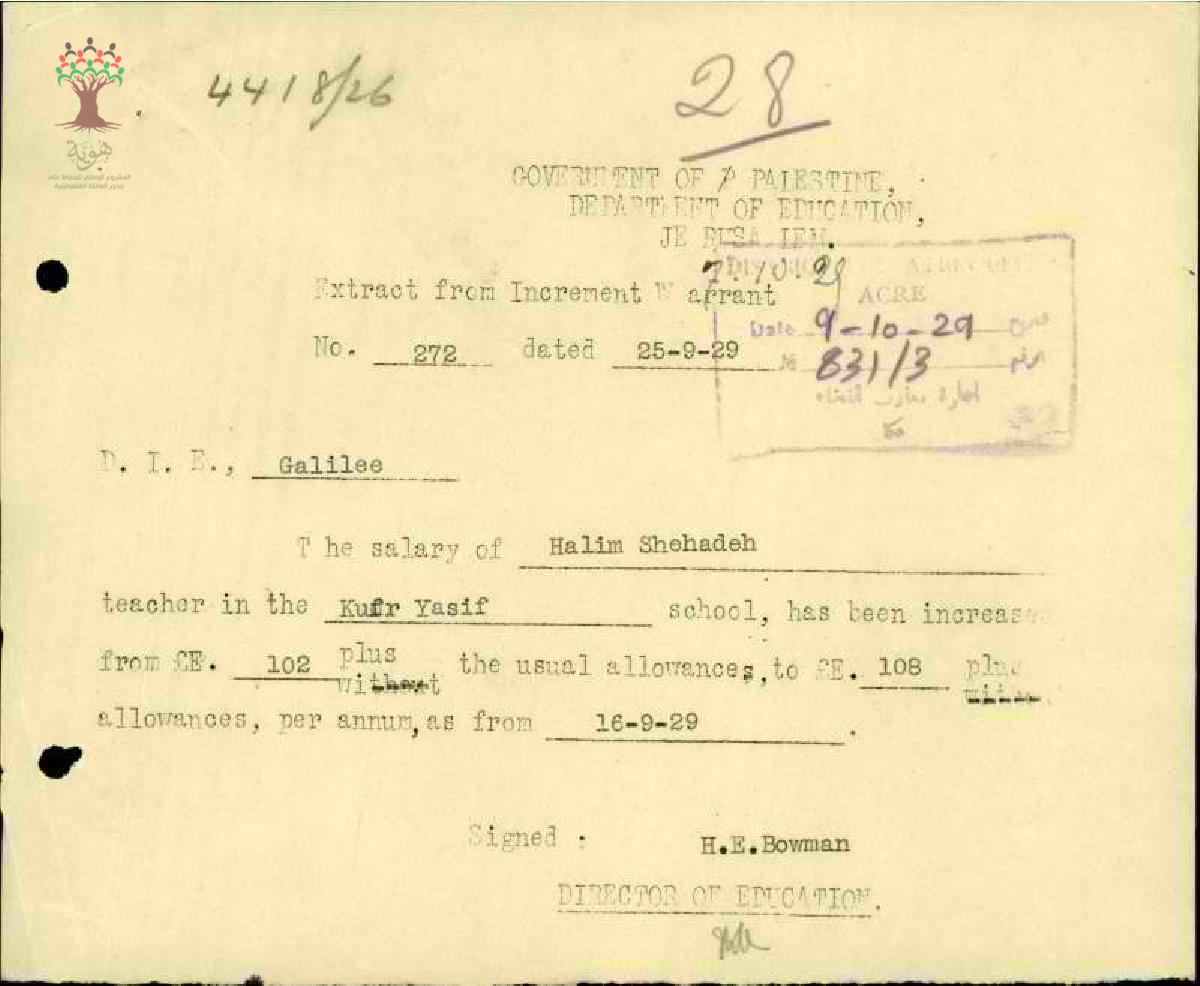 4418/26
28
هوية
المشروع الوطني للحفاظ على
جذور العائلة الفلسطينية
GOVERNMENT OF P PALESTINE,
DEPARTMENT OF EDUCATION,
JERUSALEM.
7.10.29
Extract from Increment Warrant
ACRE
Date 9-10-29 تاريخ
No. 272 dated 25-9-29
№ 831/3 الرقم
ادارة معارف القضاء
عكا
D. I. E., Galilee
The salary of Halim Shehadeh
teacher in the Kufr Yasif school, has been increased
from £E. 102 plus without the usual allowances, to £E. 108 plus
allowances, per annum, as from 16-9-29.
Signed : H.E.Bowman
DIRECTOR OF EDUCATION.